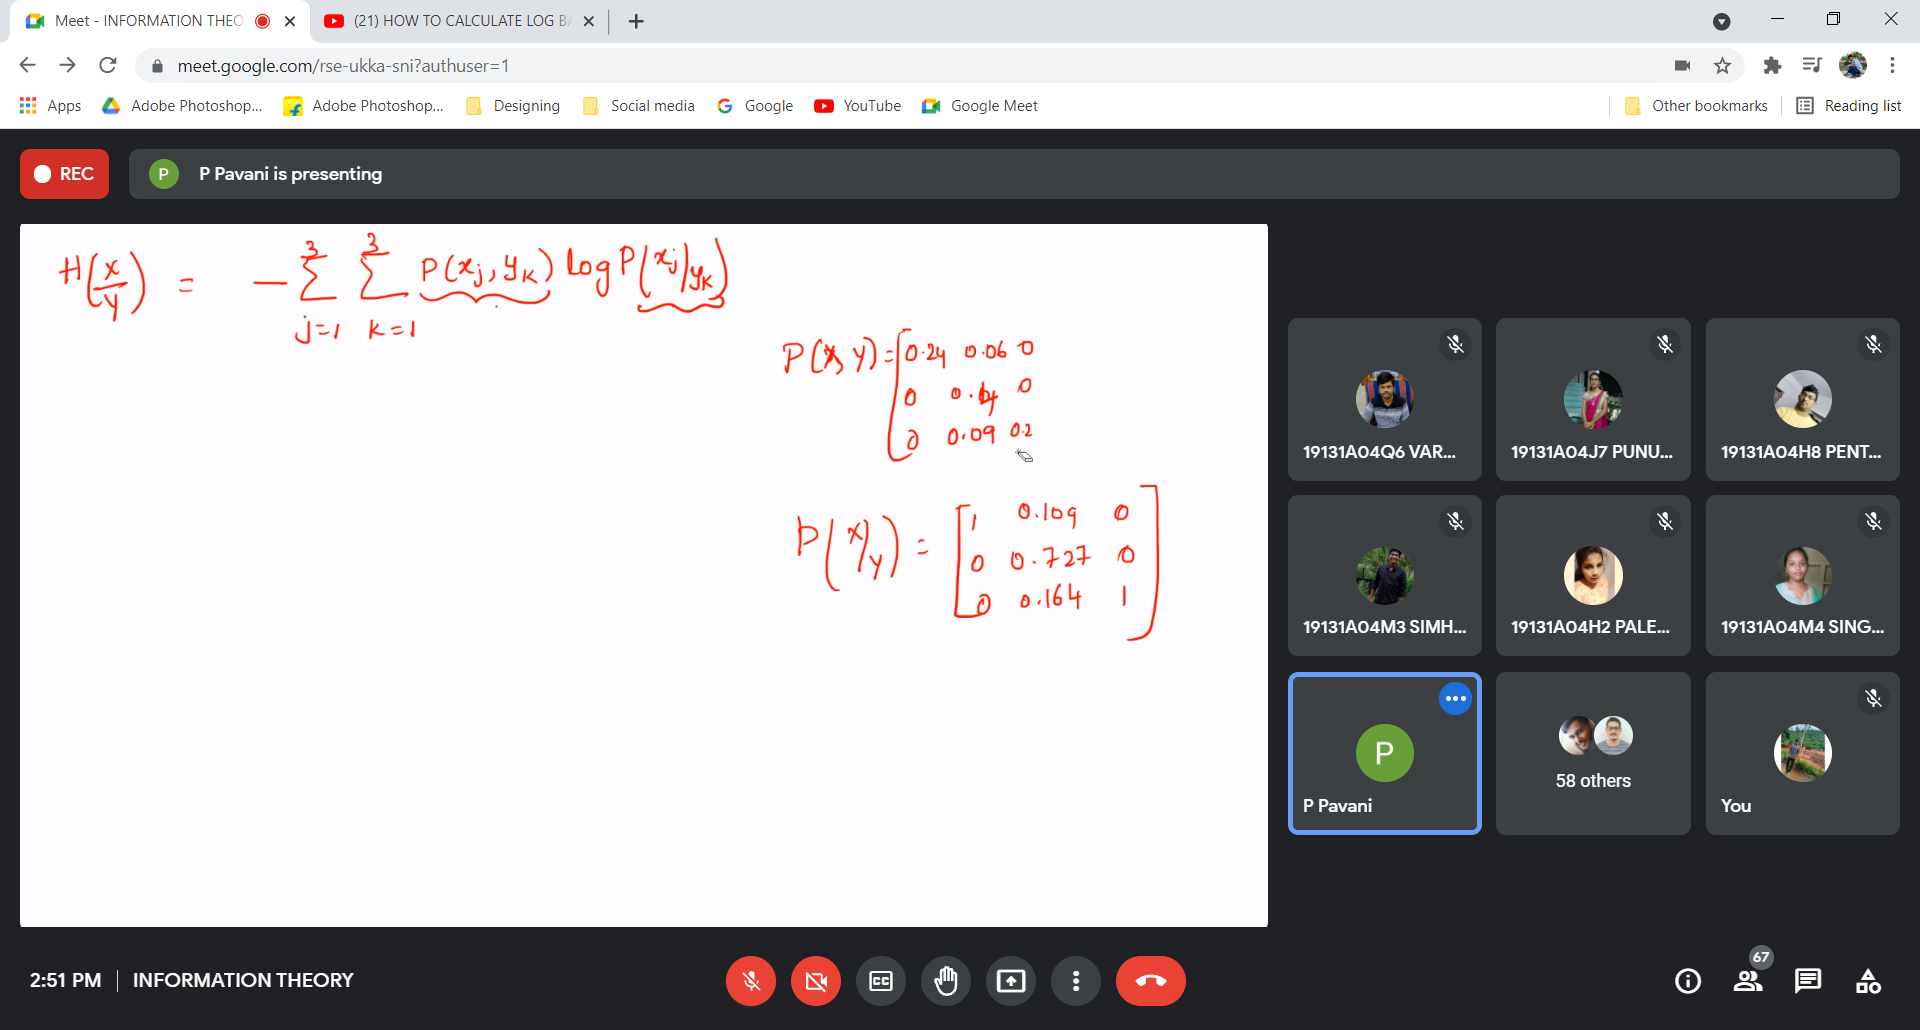 Meet - INFORMATION THEO
(21) HOW TO CALCULATE LOG BA
meet.google.com/rse-ukka-sni?authuser=1
Apps Adobe Photoshop... Adobe Photoshop... Designing Social media Google YouTube Google Meet Other bookmarks Reading list
REC
P P Pavani is presenting
H(X/Y) = - 3Σj=1 3Σk=1 P(xj, yk) log P(xj/yk)
P(X, Y) = [0.24 0.06 0
0 0
0 0.09 0.2
P(X/Y) = [1 0.109 0
0 0.727 0
0 0.164 1]
19131A04Q6 VAR... 19131A04J7 PUNU... 19131A04H8 PENT...
19131A04M3 SIMH... 19131A04H2 PALE... 19131A04M4 SING...
P
P Pavani
58 others
You
2:51 PM | INFORMATION THEORY
CC
67